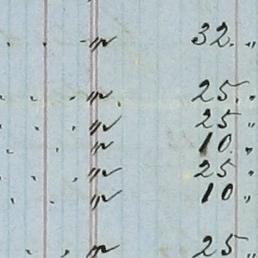 " 32. "
" 25. "
" 25 "
" 10. "
" 25 "
" 10 "
" 25 "